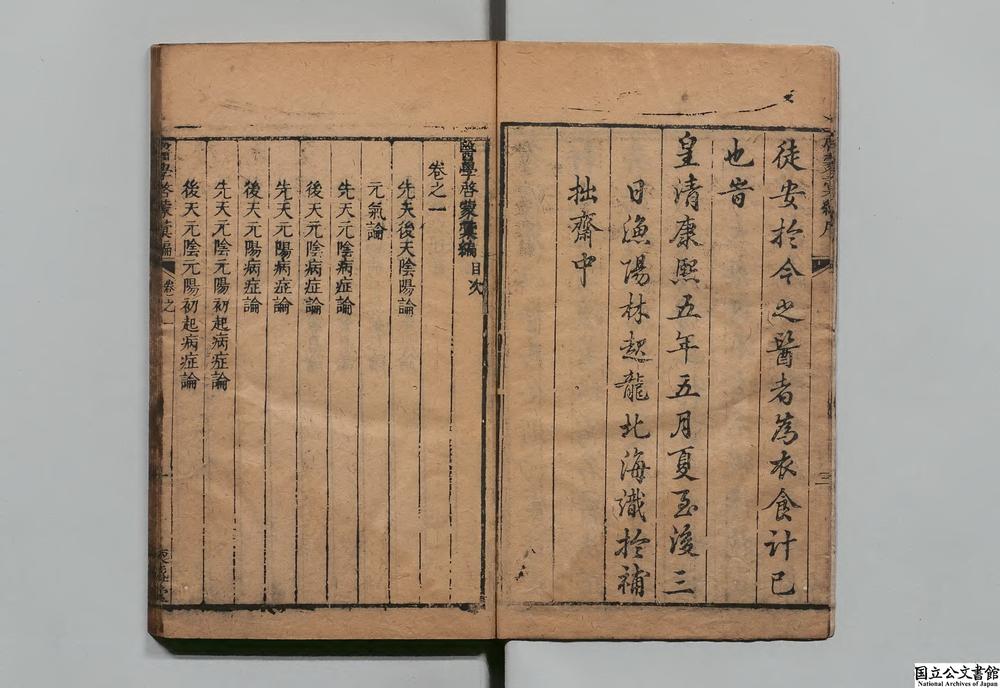 徒安扵今之醫者為衣食計已
也旹
皇清康熙五年五月夏至後三
日漁陽林起龍北海識扵補
拙齋中
醫學啓蒙彙編目次
卷之一
先天後天陰陽論
元氣論
先天元陰病症論
後天元陰病症論
先天元陽病症論
後天元陽病症論
先天元陰元陽初起病症論
後天元陰元陽初起病症論
醫學啓蒙彙編 卷之一
国立公文書館
National Archives of Japan